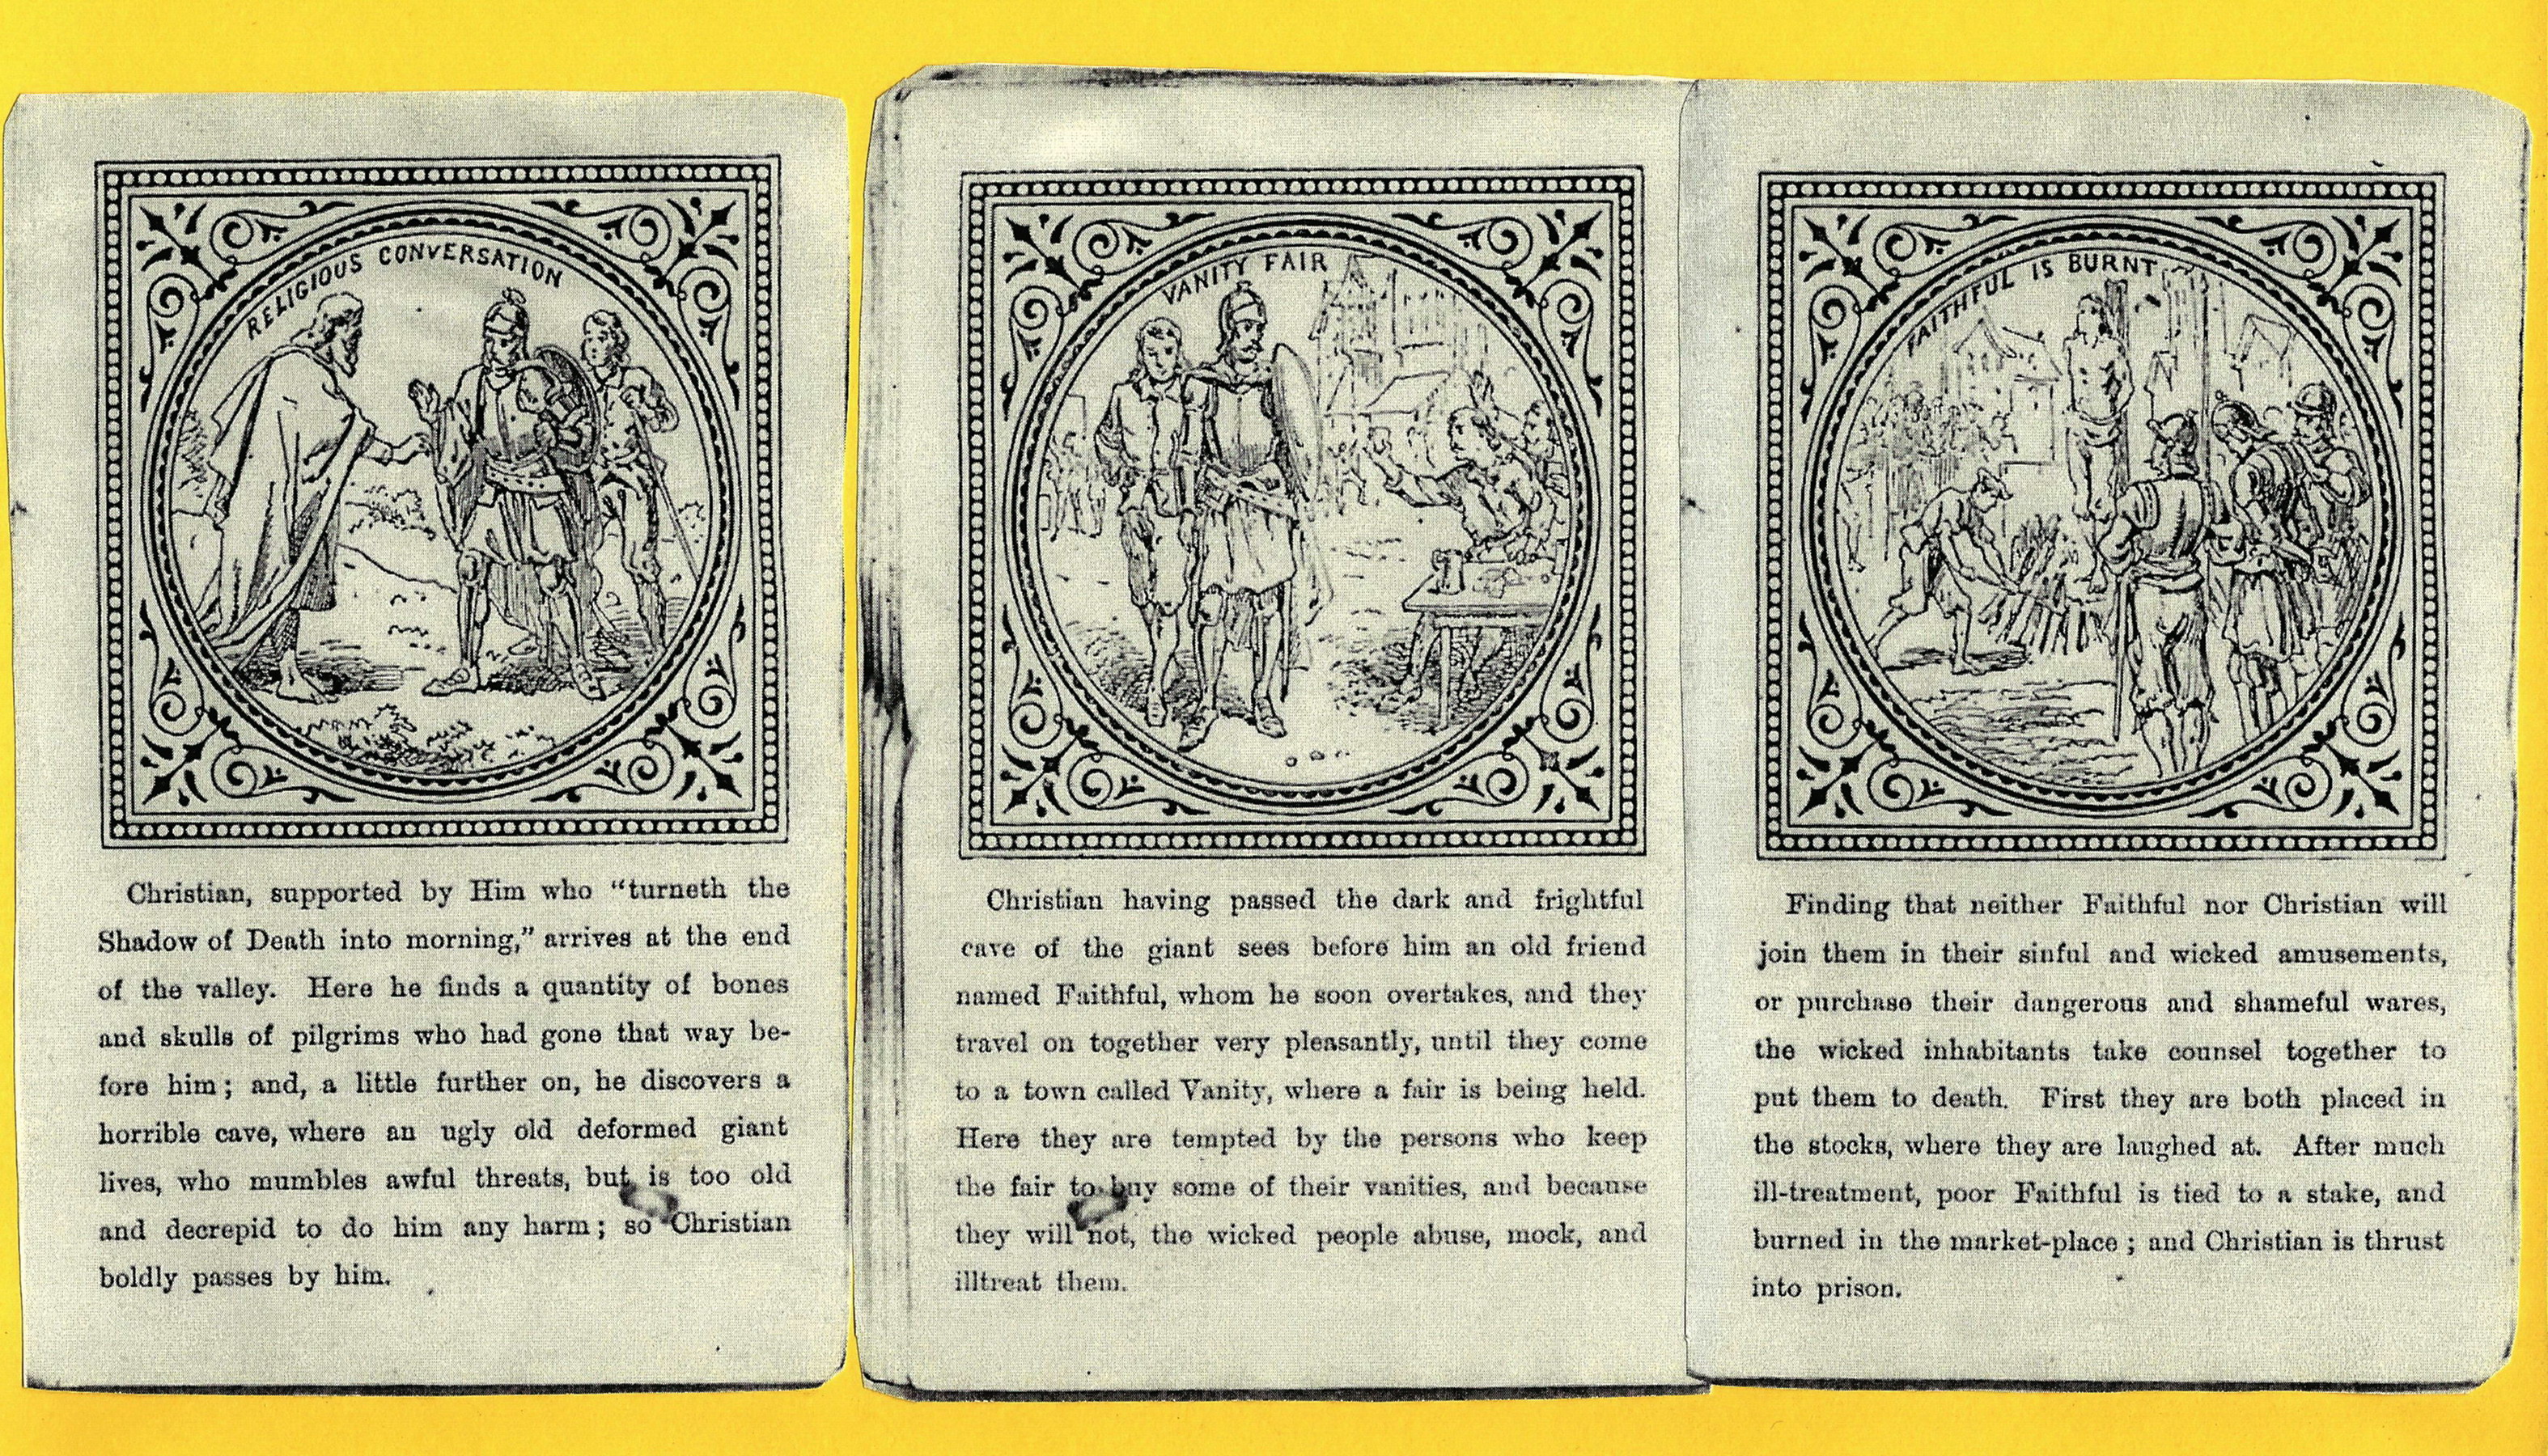 RELIGIOUS CONVERSATION
Christian, supported by Him who “turneth the
Shadow of Death into morning,” arrives at the end
of the valley. Here he finds a quantity of bones
and skulls of pilgrims who had gone that way be-
fore him; and, a little further on, he discovers a
horrible cave, where an ugly old deformed giant
lives, who mumbles awful threats, but is too old
and decrepid to do him any harm; so Christian
boldly passes by him.
VANITY FAIR
Christian having passed the dark and frightful
cave of the giant sees before him an old friend
named Faithful, whom he soon overtakes, and they
travel on together very pleasantly, until they come
to a town called Vanity, where a fair is being held.
Here they are tempted by the persons who keep
the fair to buy some of their vanities, and because
they will not, the wicked people abuse, mock, and
illtreat them.
FAITHFUL IS BURNT
Finding that neither Faithful nor Christian will
join them in their sinful and wicked amusements,
or purchase their dangerous and shameful wares,
the wicked inhabitants take counsel together to
put them to death. First they are both placed in
the stocks, where they are laughed at. After much
ill-treatment, poor Faithful is tied to a stake, and
burned in the market-place; and Christian is thrust
into prison.